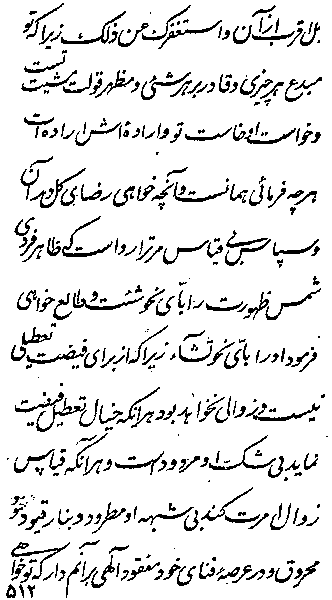 بل اقرب از آن و استغفرک عن ذلک زیرا که تو
مبدع هر چیزی و قادر بر هر شیئی و مظهر قولت مشیت تست
و خواست او خاست تو و ارادهٔ اش ارادهٔ ات
هر چه فرمائی همانست و آنچه خواهی رضای کل در آن
و سپاس بی قیاس مر ترا رواست که ظاهر فرمودی
شمس ظهورت را بای نحو شئت و طالع خواهی
فرمود او را بای نحو تشاء زیرا که از برای فیضت تعطیلی
نیست و زوالی نخواهد بود هر آنکه خیال تعطیل فیضت
نماید بی شک او مردود است و هر آنکه قیاس
زوال امرت کند بی شبهه او مطرود و بنار قیود خود
محروق و در عرصهٔ فنای خود مفقود الهی بر آنم دار که تو خواهی
۵۱۲